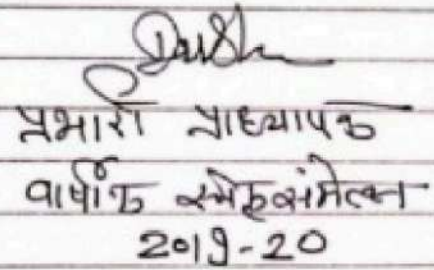 प्रभारी प्राध्यापक
वार्षीक स्नेहसंमेलन
2019-20